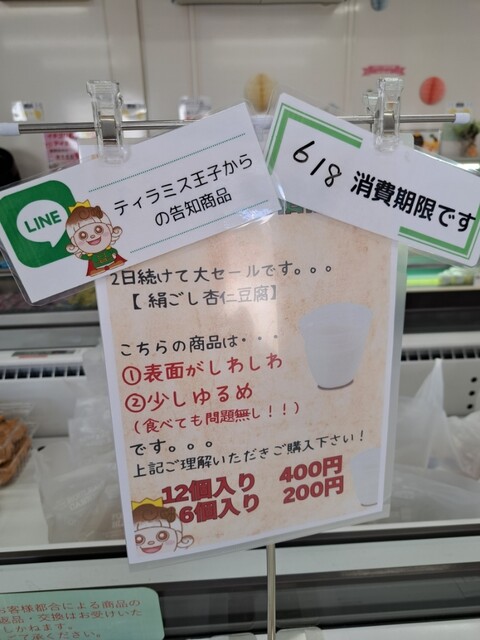 LINE
ティラミス王子から
の告知商品
618 消費期限です
2日続けて大セールです。。。
【 絹ごし杏仁豆腐】
こちらの商品は・・・
①表面がしわしわ
②少しゆるめ
(食べても問題無し!!)
です。。。
上記ご理解いただきご購入下さい!
12個入り 400円
6個入り 200円
お客様都合による商品の
返品・交換はお受けいた
しかねます。
ご了承ください。